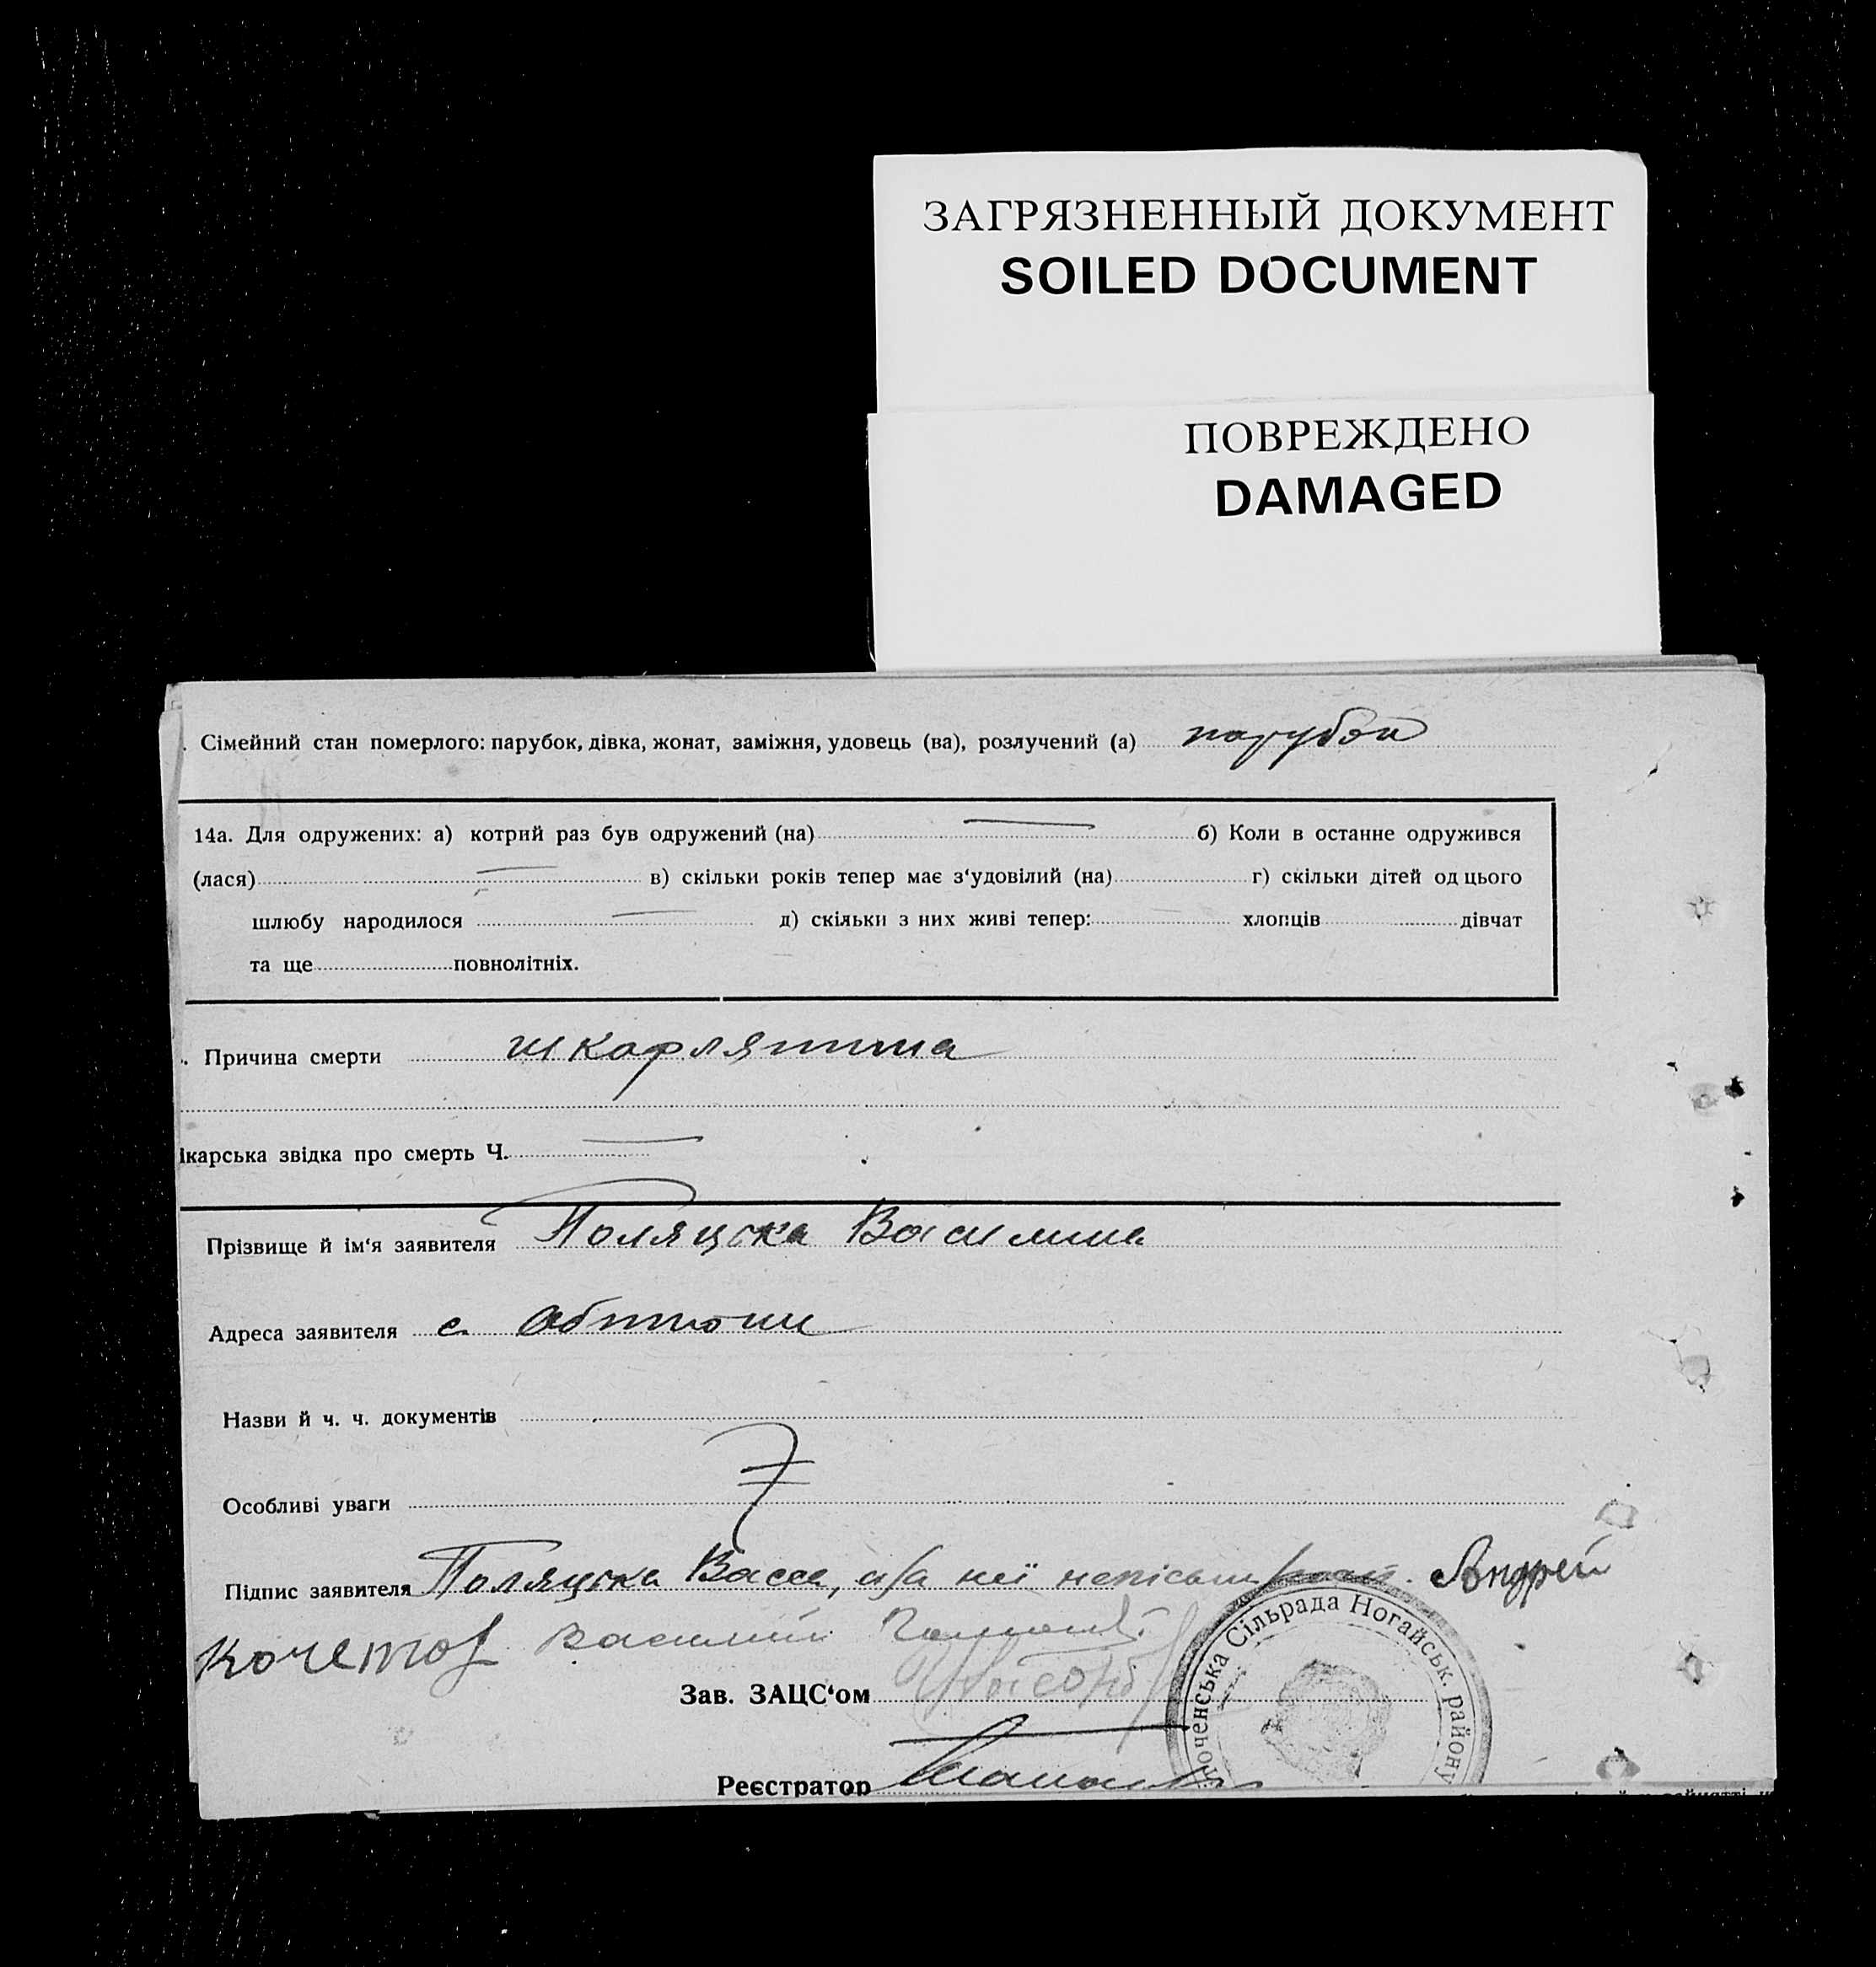 ЗАГРЯЗНЕННЫЙ ДОКУМЕНТ
SOILED DOCUMENT
ПОВРЕЖДЕНО
DAMAGED
. Сімейний стан померлого: парубок, дівка, жонат, заміжня, удовець (ва), розлучений (а) парубок
14а. Для одружених: а) котрий раз був одружений (на) — б) Коли в останне одружився
(лася) — в) скільки років тепер має з‘удовілий (на) г) скільки дітей од цього
шлюбу народилося — д) скільки з них живі тепер: — хлопців дівчат
та ще повнолітніх.
. Причина смерти шкарлятина
ікарська звідка про смерть Ч. —
Прізвище й ім‘я заявителя Поляцька Василина
Адреса заявителя с.
Назви й ч. ч. документів
Особливі уваги
Підпис заявителя Поляцька Васе, а/а неї Андрей
Кочетов Василий
Зав. ЗАЦС‘ом
Реєстратор
ноченська Сільрада Ногайськ. району